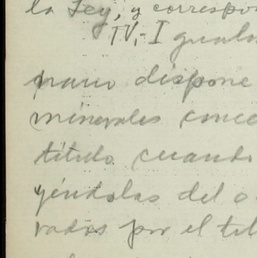 la Ley, y correspon
IV.- Igualm
mario dispone
minerales conce
título cuando
yéndolas del o
vados por el tít